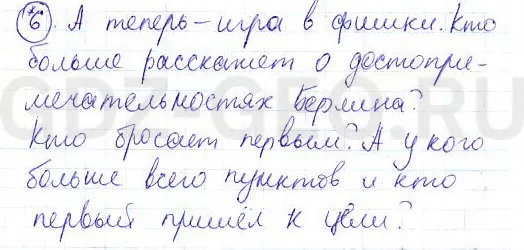 6. А теперь – игра в фишки. Кто
больше расскажет о достопри-
мечательностях Берлина?
Кто бросает первым? А у кого
больше всего пунктов и кто
первый пришёл к цели?